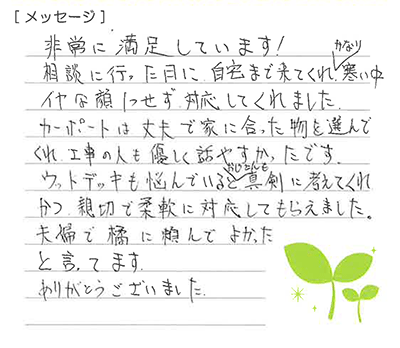 [メッセージ]
非常に満足しています!
かなり
相談に行った日に、自宅まで来てくれ、寒い中
イヤな顔1つせず対応してくれました。
カーポートは丈夫で家に合った物を選んで
くれ、工事の人も優しく話やすかったです。
ウットデッキも悩んでいると真剣に考えてくれ
かつ、親切で柔軟に対応してもらえました。
夫婦で橘に頼んでよかった
と言ってます。
ありがとうございました。